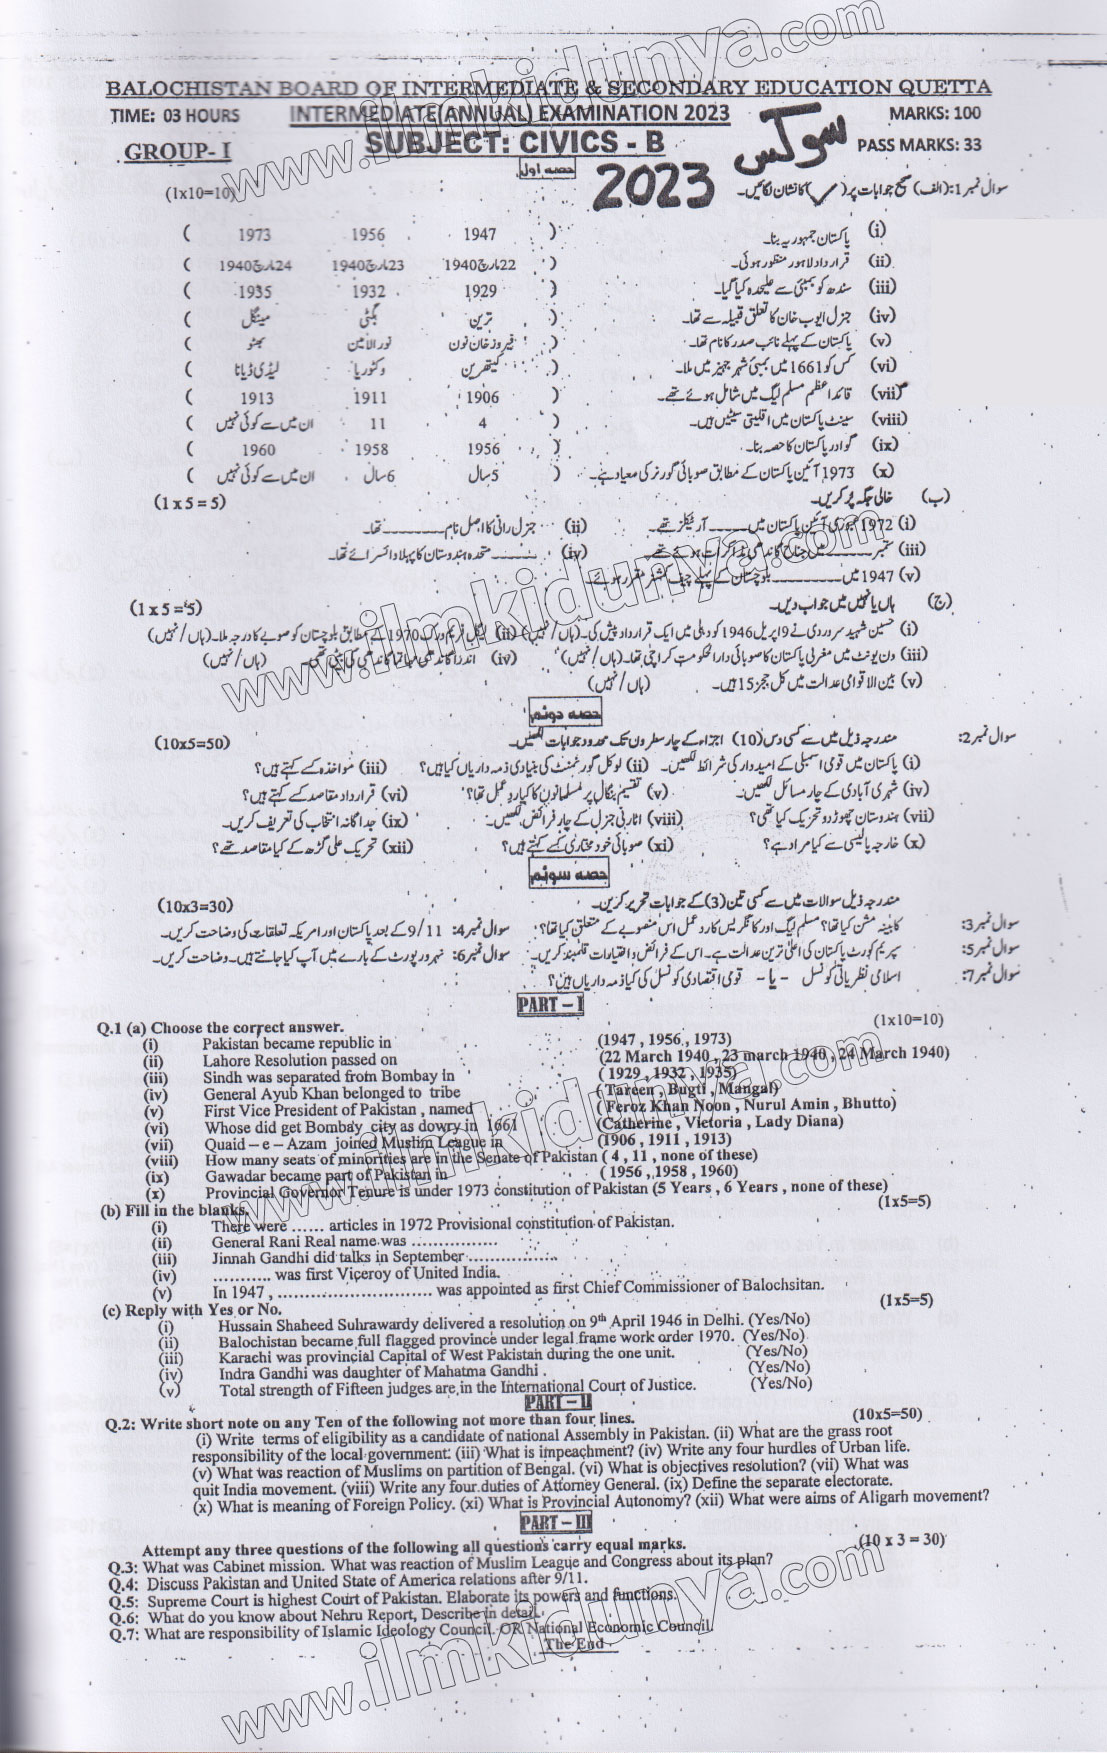 BALOCHISTAN BOARD OF INTERMEDIATE & SECONDARY EDUCATION QUETTA
TIME: 03 HOURS INTERMEDIATE(ANNUAL) EXAMINATION 2023 MARKS: 100
GROUP- I SUBJECT: CIVICS - B سوکس PASS MARKS: 33
حصہ اول
2023
سوال نمبر1:(الف) صحیح جوابات پر(✓)کا نشان لگائیں۔ (1x10=10)
(i) پاکستان جمہوریہ بنا۔ ( 1947 1956 1973 )
(ii) قرارداد لاہور منظور ہوئی۔ ( 22مارچ1940 23مارچ1940 24مارچ1940 )
(iii) سندھ کو بمبئی سے علیحدہ کیا گیا۔ ( 1929 1932 1935 )
(iv) جنرل ایوب خان کا تعلق قبیلہ سے تھا۔ ( ترین بگٹی مینگل )
(v) پاکستان کے پہلے نائب صدر کا نام تھا۔ ( فیروز خان نون نورالامین بھٹو )
(vi) کس کو 1661 میں بمبئی شہر جہیز میں ملا۔ ( کیتھرین وکٹوریا لیڈی ڈیانا )
(vii) قائداعظم مسلم لیگ میں شامل ہوئے تھے۔ ( 1906 1911 1913 )
(viii) سینٹ پاکستان میں اقلیتی سیٹیں ہیں۔ ( 4 11 ان میں سے کوئی نہیں )
(ix) گوادر پاکستان کا حصہ بنا۔ ( 1956 1958 1960 )
(x) 1973 آئین پاکستان کے مطابق صوبائی گورنر کی معیاد ہے۔ ( 5سال 6سال ان میں سے کوئی نہیں )
(ب) خالی جگہ پُر کریں۔ (1 x 5 = 5)
(i) 1972 عبوری آئین پاکستان میں ـــــ آرٹیکلز تھے۔ (ii) جنرل رانی کا اصل نام ـــــــ تھا۔
(iii) ستمبر ـــــــ میں جناح گاندھی مذاکرات ہوئے تھے۔ (iv) ـــــــ متحدہ ہندوستان کا پہلا وائسرائے تھا۔
(v) 1947 میں ــــــــــ بلوچستان کے پہلے چیف کمشنر مقرر ہوئے۔
(ج) ہاں یا نہیں میں جواب دیں۔ (1 x 5 = 5)
(i) حسین شہید سروردی نے 9اپریل 1946 کو دہلی میں ایک قرارداد پیش کی۔ (ہاں/نہیں) (ii) لیگل فریم ورک 1970 کے مطابق بلوچستان کو صوبے کا درجہ ملا۔ (ہاں/نہیں)
(iii) ون یونٹ میں مغربی پاکستان کا صوبائی دارالحکومت کراچی تھا۔ (ہاں/نہیں) (iv) اندرا گاندھی مہاتما گاندھی کی بیٹی تھی۔ (ہاں/نہیں)
(v) بین الاقوامی عدالت میں کل ججز 15 ہیں۔ (ہاں/نہیں)
حصہ دوئم
سوال نمبر2: مندرجہ ذیل میں سے کسی دس (10) اجزاء کے چار سطروں تک محدود جوابات لکھیں۔ (10x5=50)
(i) پاکستان میں قومی اسمبلی کے امیدوار کی شرائط لکھیں۔ (ii) لوکل گورنمنٹ کی بنیادی ذمہ داریاں کیا ہیں؟ (iii) مواخذہ کسے کہتے ہیں؟
(iv) شہری آبادی کے چار مسائل لکھیں۔ (v) تقسیم بنگال پر مسلمانوں کا کیا ردعمل تھا؟ (vi) قرارداد مقاصد کسے کہتے ہیں؟
(vii) ہندوستان چھوڑ دو تحریک کیا تھی؟ (viii) اٹارنی جنرل کے چار فرائض لکھیں۔ (ix) جداگانہ انتخاب کی تعریف کریں۔
(x) خارجہ پالیسی سے کیا مراد ہے؟ (xi) صوبائی خودمختاری کسے کہتے ہیں؟ (xii) تحریک علی گڑھ کے کیا مقاصد تھے؟
حصہ سوئم
مندرجہ ذیل سوالات میں سے کسی تین (3) کے جوابات تحریر کریں۔ (10x3=30)
سوال نمبر3: کابینہ مشن کیا تھا؟ مسلم لیگ اور کانگریس کا ردعمل اس منصوبے کے متعلق کیا تھا؟ سوال نمبر4: 9/11 کے بعد پاکستان اور امریکہ تعلقات کی وضاحت کریں۔
سوال نمبر5: سپریم کورٹ پاکستان کی اعلیٰ ترین عدالت ہے۔ اس کے فرائض و اختیارات قلمبند کریں۔ سوال نمبر6: نہرو رپورٹ کے بارے میں آپ کیا جانتے ہیں۔ وضاحت کریں۔
سوال نمبر7: اسلامی نظریاتی کونسل - یا - قومی اقتصادی کونسل کی کیا ذمہ داریاں ہیں؟
PART – I
Q.1 (a) Choose the correct answer. (1x10=10)
(i) Pakistan became republic in (1947 , 1956 , 1973)
(ii) Lahore Resolution passed on (22 March 1940 , 23 march 1940 , 24 March 1940)
(iii) Sindh was separated from Bombay in ( 1929 , 1932 , 1935)
(iv) General Ayub Khan belonged to tribe ( Tareen , Bugti , Mangal)
(v) First Vice President of Pakistan , named ( Feroz Khan Noon , Nurul Amin , Bhutto)
(vi) Whose did get Bombay city as dowry in 1661 (Catherine , Victoria , Lady Diana)
(vii) Quaid – e – Azam joined Muslim League in (1906 , 1911 , 1913)
(viii) How many seats of minorities are in the Senate of Pakistan ( 4 , 11 , none of these)
(ix) Gawadar became part of Pakistan in ( 1956 , 1958 , 1960)
(x) Provincial Governor Tenure is under 1973 constitution of Pakistan (5 Years , 6 Years , none of these)
(b) Fill in the blanks. (1x5=5)
(i) There were ...... articles in 1972 Provisional constitution of Pakistan.
(ii) General Rani Real name was ................
(iii) Jinnah Gandhi did talks in September .................
(iv) ........... was first Viceroy of United India.
(v) In 1947 , ............................. was appointed as first Chief Commissioner of Balochsitan.
(c) Reply with Yes or No. (1x5=5)
(i) Hussain Shaheed Suhrawardy delivered a resolution on 9th April 1946 in Delhi. (Yes/No)
(ii) Balochistan became full flagged province under legal frame work order 1970. (Yes/No)
(iii) Karachi was provincial Capital of West Pakistan during the one unit. (Yes/No)
(iv) Indra Gandhi was daughter of Mahatma Gandhi . (Yes/No)
(v) Total strength of Fifteen judges are in the International Court of Justice. (Yes/No)
PART – II
Q.2: Write short note on any Ten of the following not more than four lines. (10x5=50)
(i) Write terms of eligibility as a candidate of national Assembly in Pakistan. (ii) What are the grass root
responsibility of the local government. (iii) What is impeachment? (iv) Write any four hurdles of Urban life.
(v) What was reaction of Muslims on partition of Bengal. (vi) What is objectives resolution? (vii) What was
quit India movement. (viii) Write any four duties of Attorney General. (ix) Define the separate electorate.
(x) What is meaning of Foreign Policy. (xi) What is Provincial Autonomy? (xii) What were aims of Aligarh movement?
PART – III
Attempt any three questions of the following all questions carry equal marks. (10 x 3 = 30)
Q.3: What was Cabinet mission. What was reaction of Muslim League and Congress about its plan?
Q.4: Discuss Pakistan and United State of America relations after 9/11.
Q.5: Supreme Court is highest Court of Pakistan. Elaborate its powers and functions.
Q.6: What do you know about Nehru Report, Describe in detail.
Q.7: What are responsibility of Islamic Ideology Council. OR National Economic Council.
The End
www.ilmkidunya.com
www.ilmkidunya.com
www.ilmkidunya.com
www.ilmkidunya.com